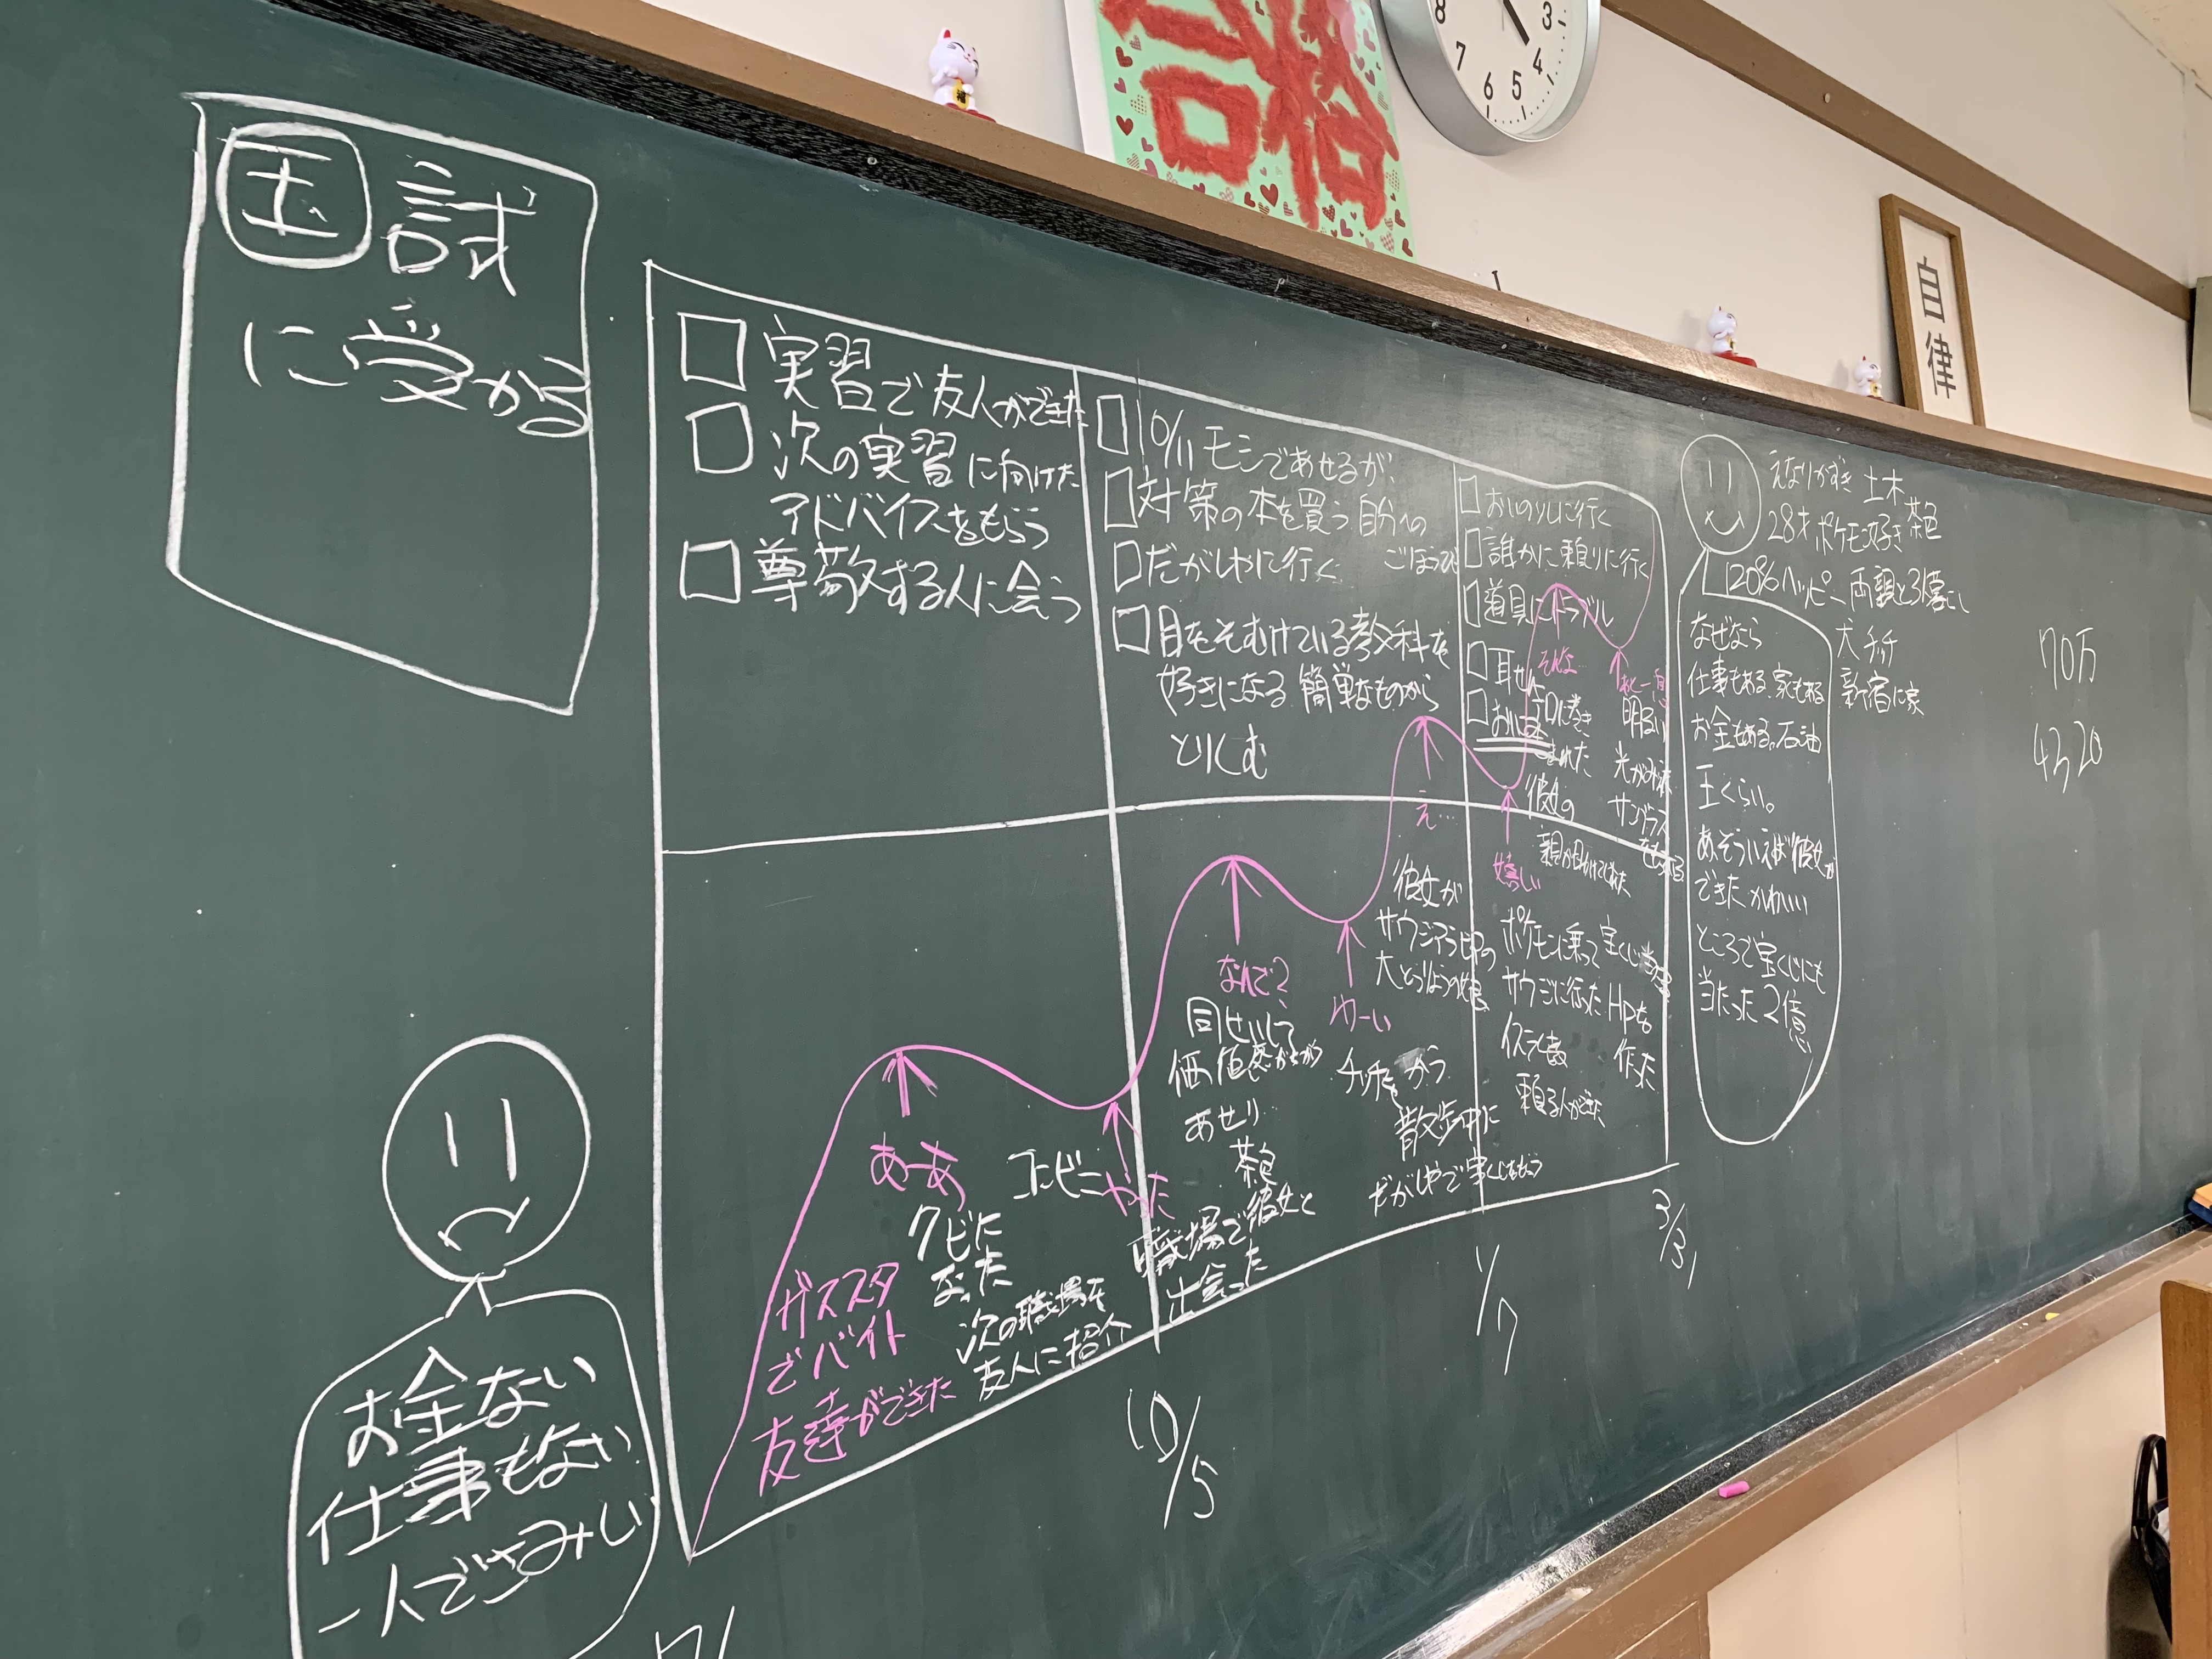 合格
8 7 6 5 4 3
自律
国試
に受かる
実習で友人ができた
次の実習に向けた
アドバイスをもらう
尊敬する人に会う
10/11 モシであせるが、
対策の本を買う 自分への
ごほうび
だがしやに行く
目をそむけている教科を
好きになる 簡単なものから
とりくむ
おいのりしに行く
誰かに頼りに行く
道具にトラブル
耳せん
えなりかずき 土木
28才 ポケモン好き 茶色
120%ハッピー 両親と3人暮らし
犬 チッチ
新宿に家
なぜなら
仕事もある 家もある
お金もある。石油
王くらい。
あ、そういえば彼女が
できた かわいい
ところで宝くじにも
当たった 2億
70万
4320
お金ない
仕事もない
一人でさみしい
ガススタ
でバイト
友達ができた
あーあ
クビに
なった
次の職場を
友人に紹介
コンビニ
やった
なんで?
同せいして
価値感がちがう
あせり
茶色
職場で彼女と
出会った
わーい
チッチを かう
散歩中に
だがしやで宝くじをもらう
え…
彼女が
サウジアラビアの
大とうりょうの娘
嬉しい
親が助けてくれた
ポケモンに乗って
サウジに行った
頼る人ができた
そんな
まきこまれた
彼女の
あと一息
明るい
光がみえた
サングラス
宝くじ当たる
HPを
作った
10/5
1/7
3/31